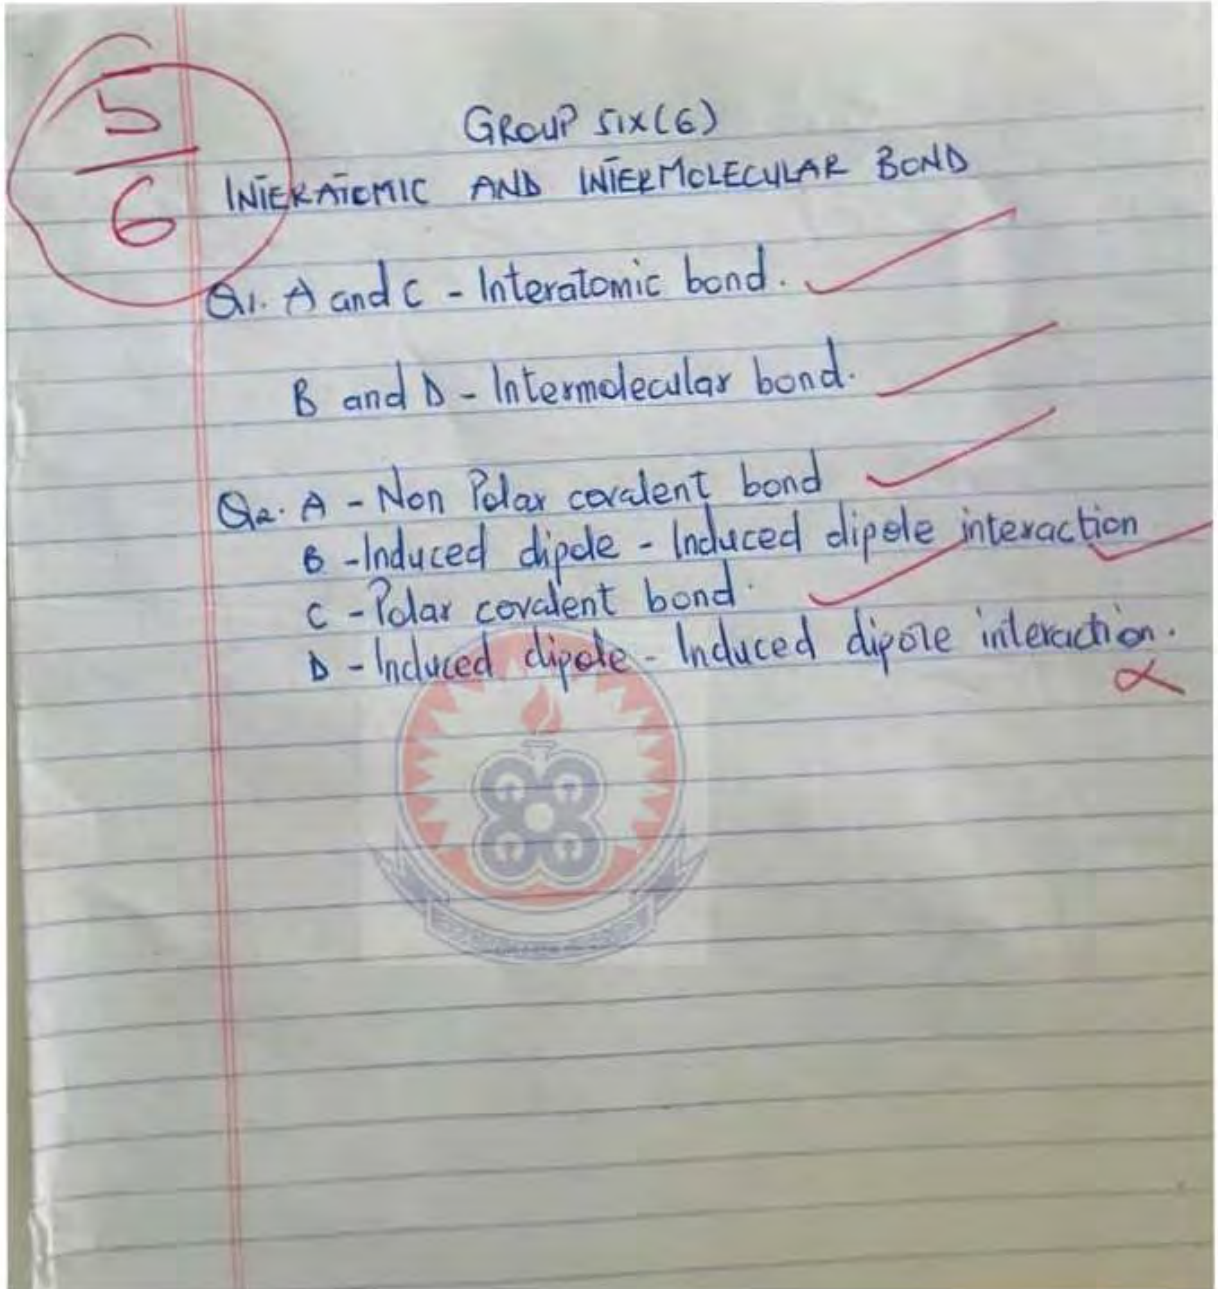 5
6
GROUP SIX (6)
INTERATOMIC AND INTERMOLECULAR BOND
Q1. A and C - Interatomic bond.
B and D - Intermolecular bond.
Q2. A - Non Polar covalent bond
B - Induced dipole - Induced dipole interaction
C - Polar covalent bond.
D - Induced dipole - Induced dipole interaction.